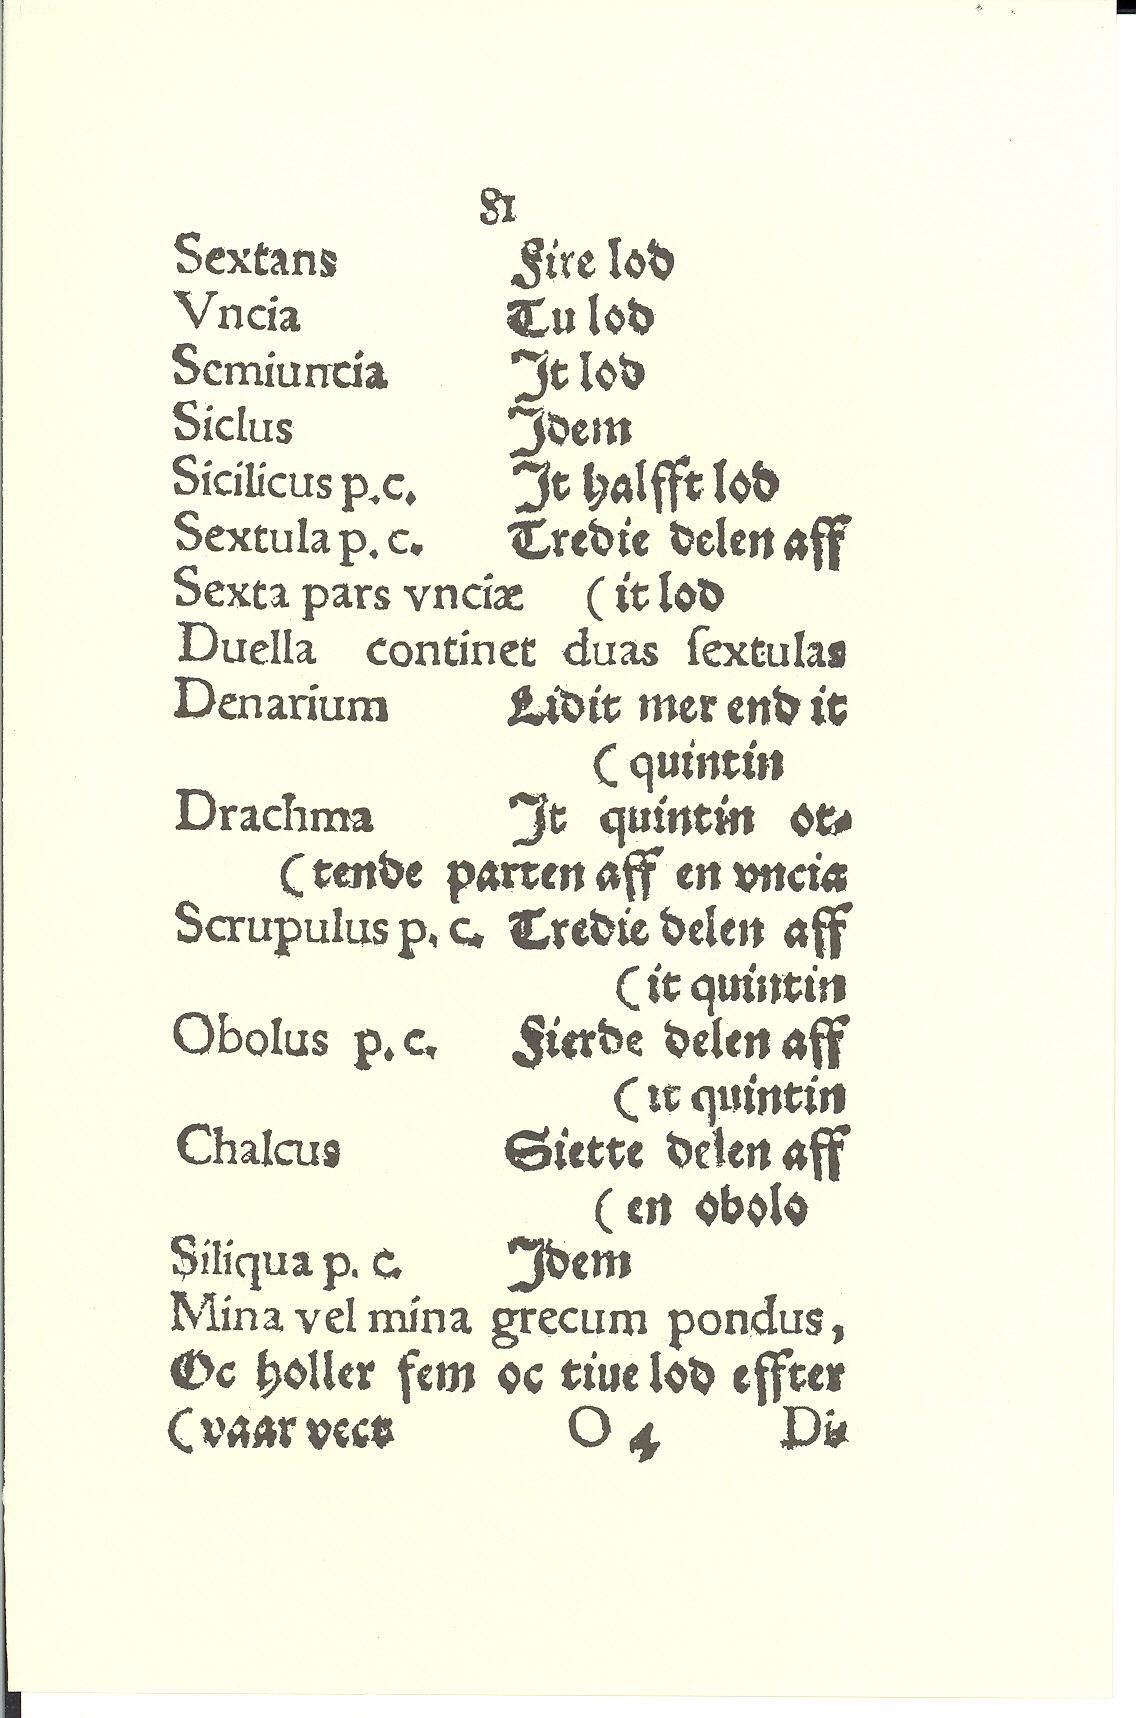 81
Sextans Fire lod
Vncia Tu lod
Semiuncia It lod
Siclus Idem
Sicilicus p.c. It halfft lod
Sextula p. c. Tredie delen aff
Sexta pars vnciæ (it lod
Duella continet duas ſextulas
Denarium Lidit mer end it
(quintin
Drachma It quintin ot-
(tende parten aff en vncia
Scrupulus p. c. Tredie delen aff
(it quintin
Obolus p. c. Fierde delen aff
(it quintin
Chalcus Siette delen aff
(en obolo
Siliqua p. c. Idem
Mina vel mina grecum pondus,
Oc holler fem oc tiue lod effter
(vaar vect O 4 Di-